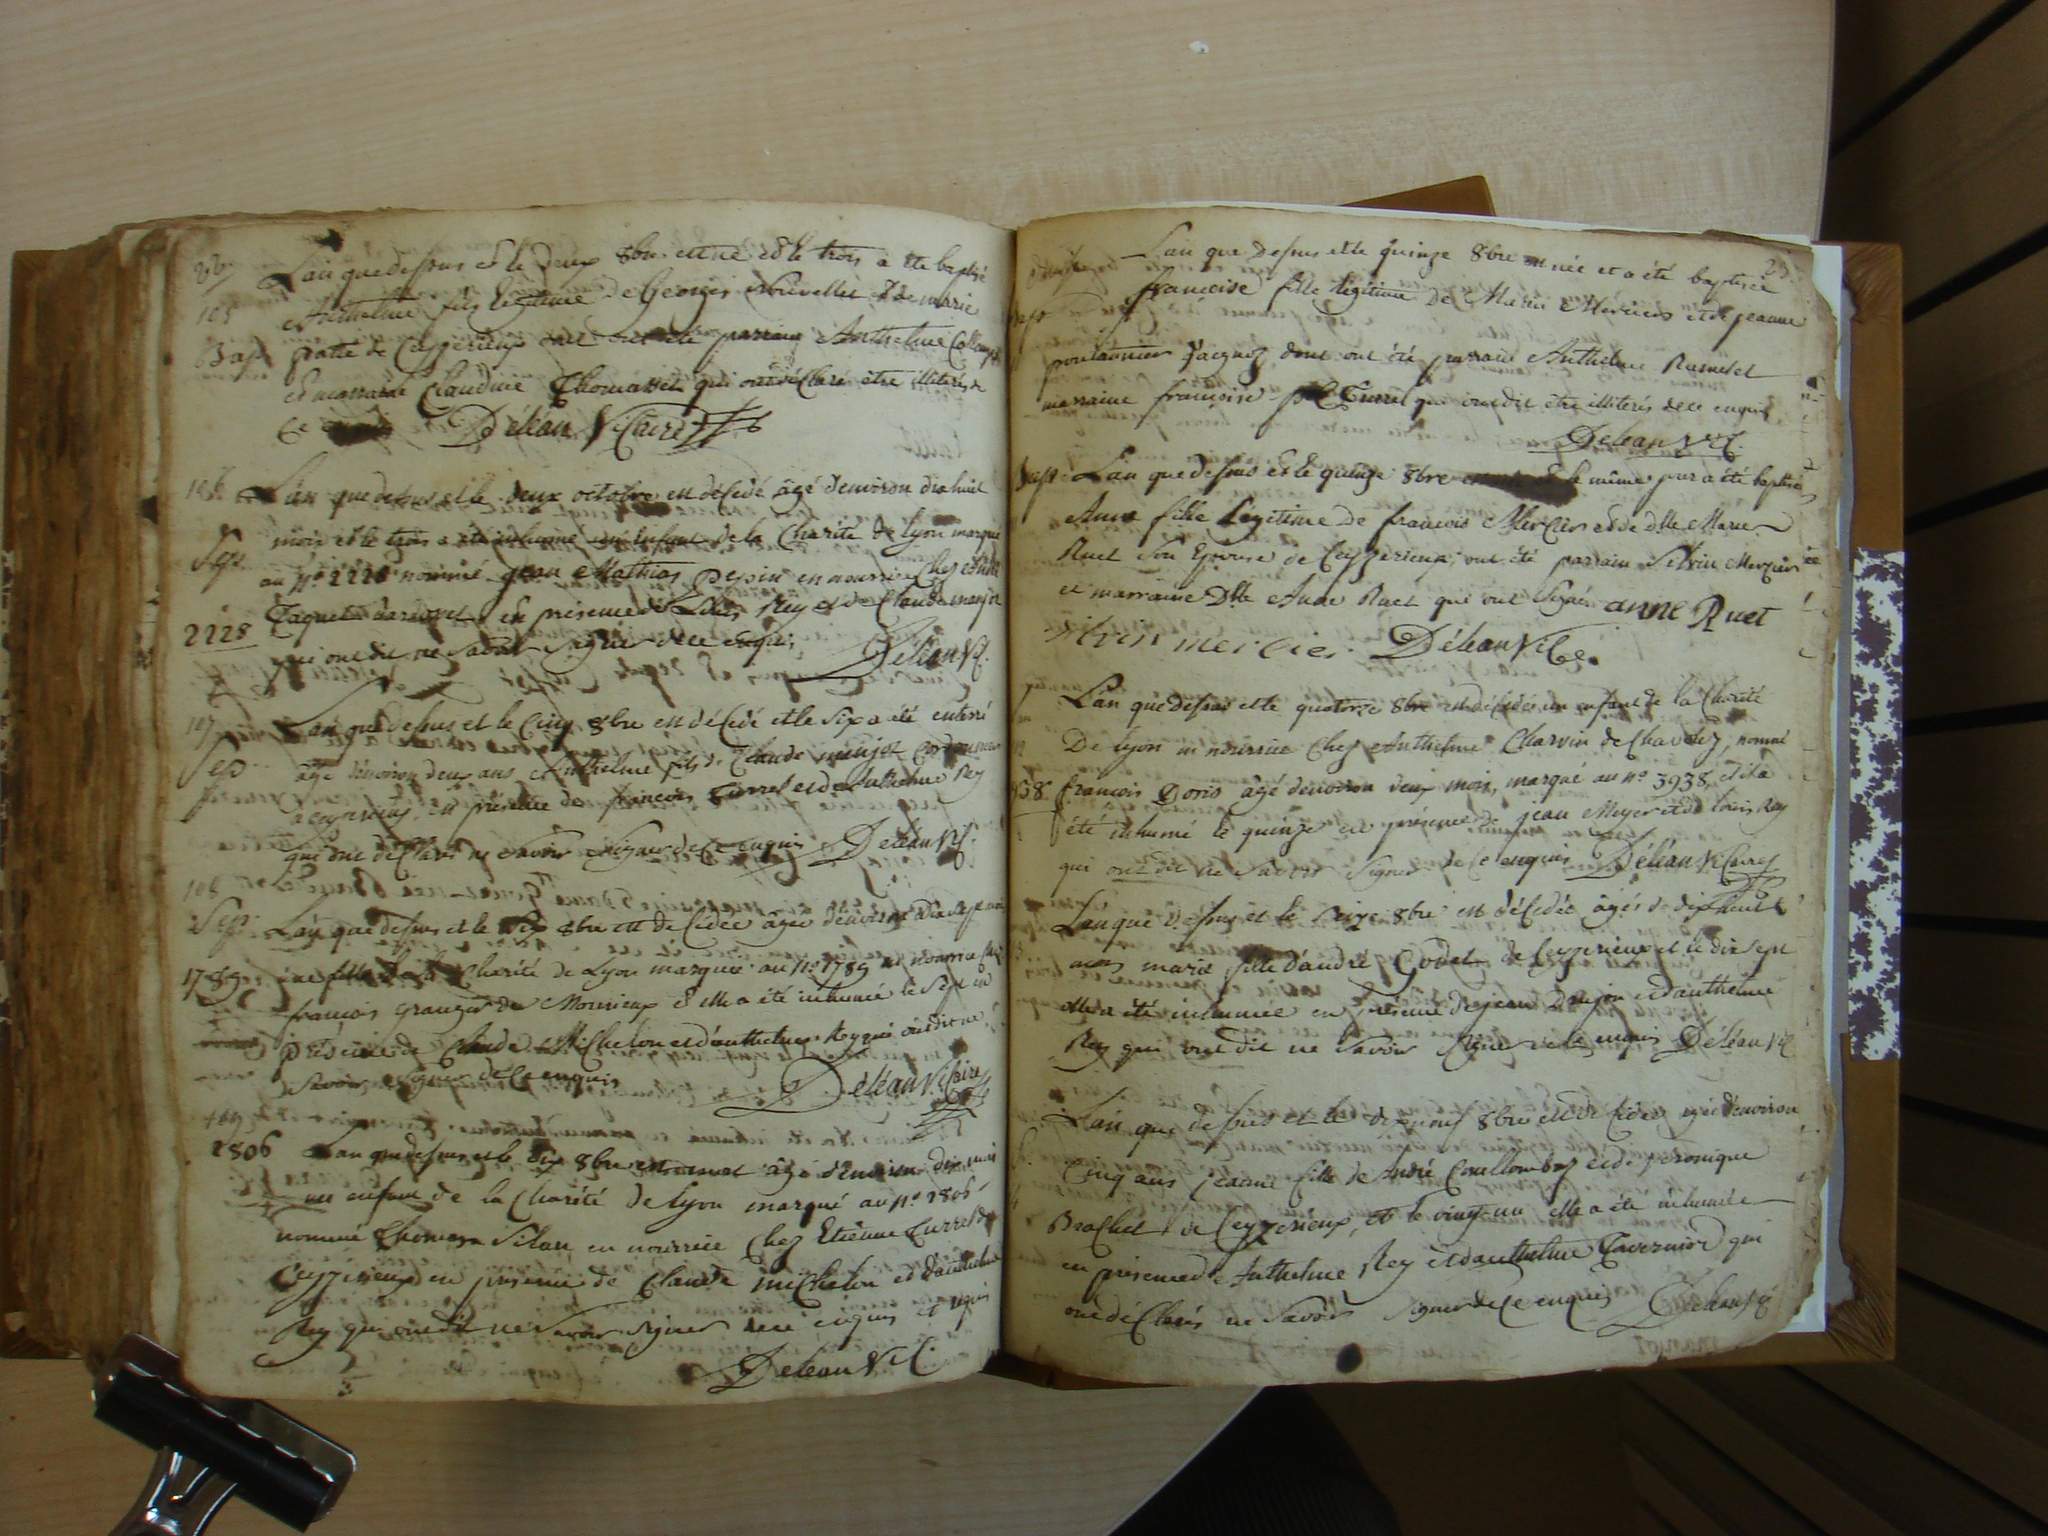 105
Bap
L'an que dessus et le deux 8bre est né et le trois a été baptisé
Anthelme fils légitime de Georges Nouvellet et de marie
de Ceyzerieux ont été parrain Anthelme
et marraine Claudine Thomasset qui ont déclaré être illiterés de
ce Déléan Vicaire
106
Sep.
2228
L'an que dessus et le deux octobre est décédé âgé d'environ dix huit
mois et le trois a été inhumé un enfant de la Charité de lyon marqué
au No 2228 nommé jean Mathias pepin en nourrice chez
en présence de Louis Rey et de Claude manjot
qui ont dit ne savoir signer de ce enquis Déléan Vic.
107
Sep
L'an que dessus et le cinq 8bre est décédé et le six a été enterré
âgé d'environ deux ans Anthelme fils de Claude manjot cordonnier
a ceyzerieux, en présence de françois Turrel et de Anthelme Rey
qui ont déclaré ne savoir signer de ce enquis Déléan Vic.
108
Sep.
1789
L'an que dessus et le six 8bre est décédée âgée d'environ dix sept mois
une fille de la Charité de Lyon marquée au No 1789 en nourrice chez
françois granger de Mourieux et elle a été inhumée le sept en
présence de Claude Michelon et d'anthelme Rey qui ont dit ne
savoir signer de ce enquis Déléan Vicaire
109
1806
L'an que dessus et le dix 8bre est mort âgé d'environ dix mois
un enfant de la Charité de lyon marqué au No. 1806
nommé thomas Silan en nourrice chez Etienne Turrel de
Ceyzerieux en présence de Claude michelon et d'anthelme
Rey qui ont dit ne savoir signer de ce enquis et requis
Déléan Vic.
L'an que dessus et le quinze 8bre est née et a été baptisée
françoise fille légitime de Marin Merciers et de jeanne
dont ont été parrain Anthelme Rumelet
marraine françoise Turrel qui ont dit être illiterés de ce enquis
Déléan Vic.
Bap. L'an que dessus et le quinze 8bre le même jour a été baptisée
Anne fille Légitime de francois Mercier et de dlle Marie
Ruet son Epouse de Ceyzerieux, ont été parrain Silvin Mercier
et marraine Dlle Anne Ruet qui ont signé. anne Ruet
silvin mercier. Déléan Vic.
L'an que dessus et le quatorze 8bre est décédé un enfant de la Charité
De lyon en nourrice chez Anthelme Charvin de Chavoley, nommé
938 francois Doris âgé d'environ deux mois, marqué au no. 3938, et il a
été inhumé le quinze en présence de jean Meyer et de louis Rey
qui ont dit ne savoir signer de ce enquis Déléan Vicaire
L'an que dessus et le seize 8bre est décédée âgée de dix huit
mois marie fille d'andré Godet de Ceyzerieux et le dix sept
elle a été inhumée en présence de jean Drujon et d'anthelme
Rey qui ont dit ne savoir signer de ce enquis Déléan Vic
L'an que dessus et le dix neuf 8bre est décédée agée d'environ
Cinq ans jeanne fille de André Coullomboz et de peronique
Brachet de Ceyzerieux, et le vingt un elle a été inhumée
en présence de Anthelme Rey et d'anthelme Tavernier qui
ont déclarés ne savoir signer de ce enquis Déléan Vic